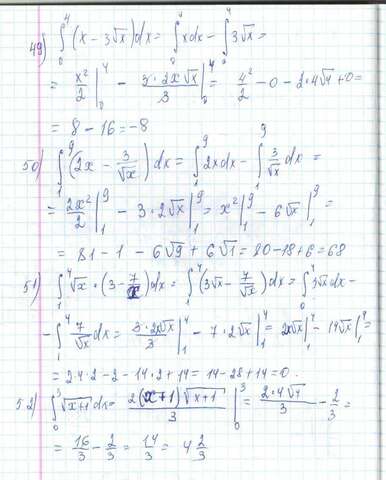 49) ∫₀⁴ (x − 3√x)dx = ∫₀⁴ xdx − ∫₀⁴ 3√x =
= x²/2 |₀⁴ − 3·2x√x/3 |₀⁴ = 4²/2 − 0 − 2·4√4 + 0 =
= 8 − 16 = −8
50) ∫₁⁹ (2x − 3/√x) dx = ∫₁⁹ 2xdx − ∫₁⁹ 3/√x dx =
= 2x²/2 |₁⁹ − 3·2√x |₁⁹ = x² |₁⁹ − 6√x |₁⁹ =
= 81 − 1 − 6√9 + 6√1 = 80 − 18 + 6 = 68
51) ∫₁⁴ √x · (3 − 7/x)dx = ∫₁⁴ (3√x − 7/√x)dx = ∫₀⁴ 3√x dx −
− ∫₁⁴ 7/√x dx = 3·2x√x/3 |₁⁴ − 7·2√x |₁⁴ = 2x√x |₁⁴ − 14√x |₁⁴ =
= 2·4·2 − 2 − 14·2 + 14 = 14 − 28 + 14 = 0.
52) ∫₀³ √(x+1) dx = 2(x+1)√(x+1)/3 |₀³ = 2·4√4/3 − 2/3 =
= 16/3 − 2/3 = 14/3 = 4 2/3